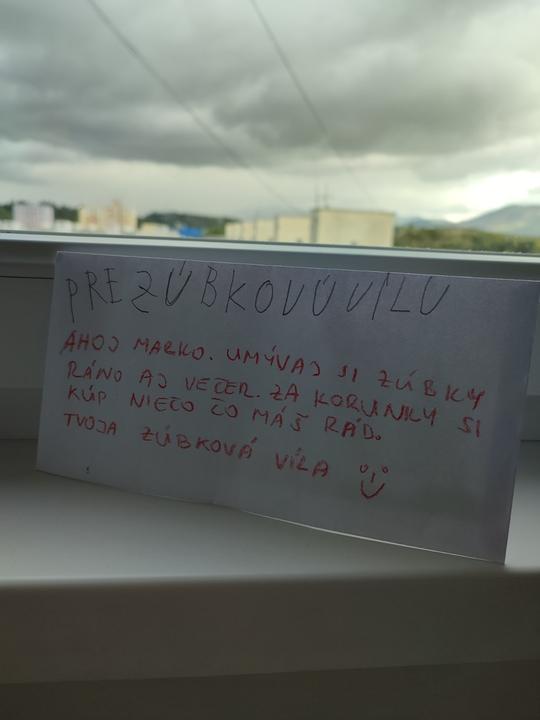 PRE ZÚBKOVÚ VÍLU
AHOJ MARKO. UMÝVAJ SI ZÚBKY
RÁNO AJ VEČER. ZA KORUNKY SI
KÚP NIEČO ČO MÁŠ RÁD.
TVOJA ZÚBKOVÁ VÍLA